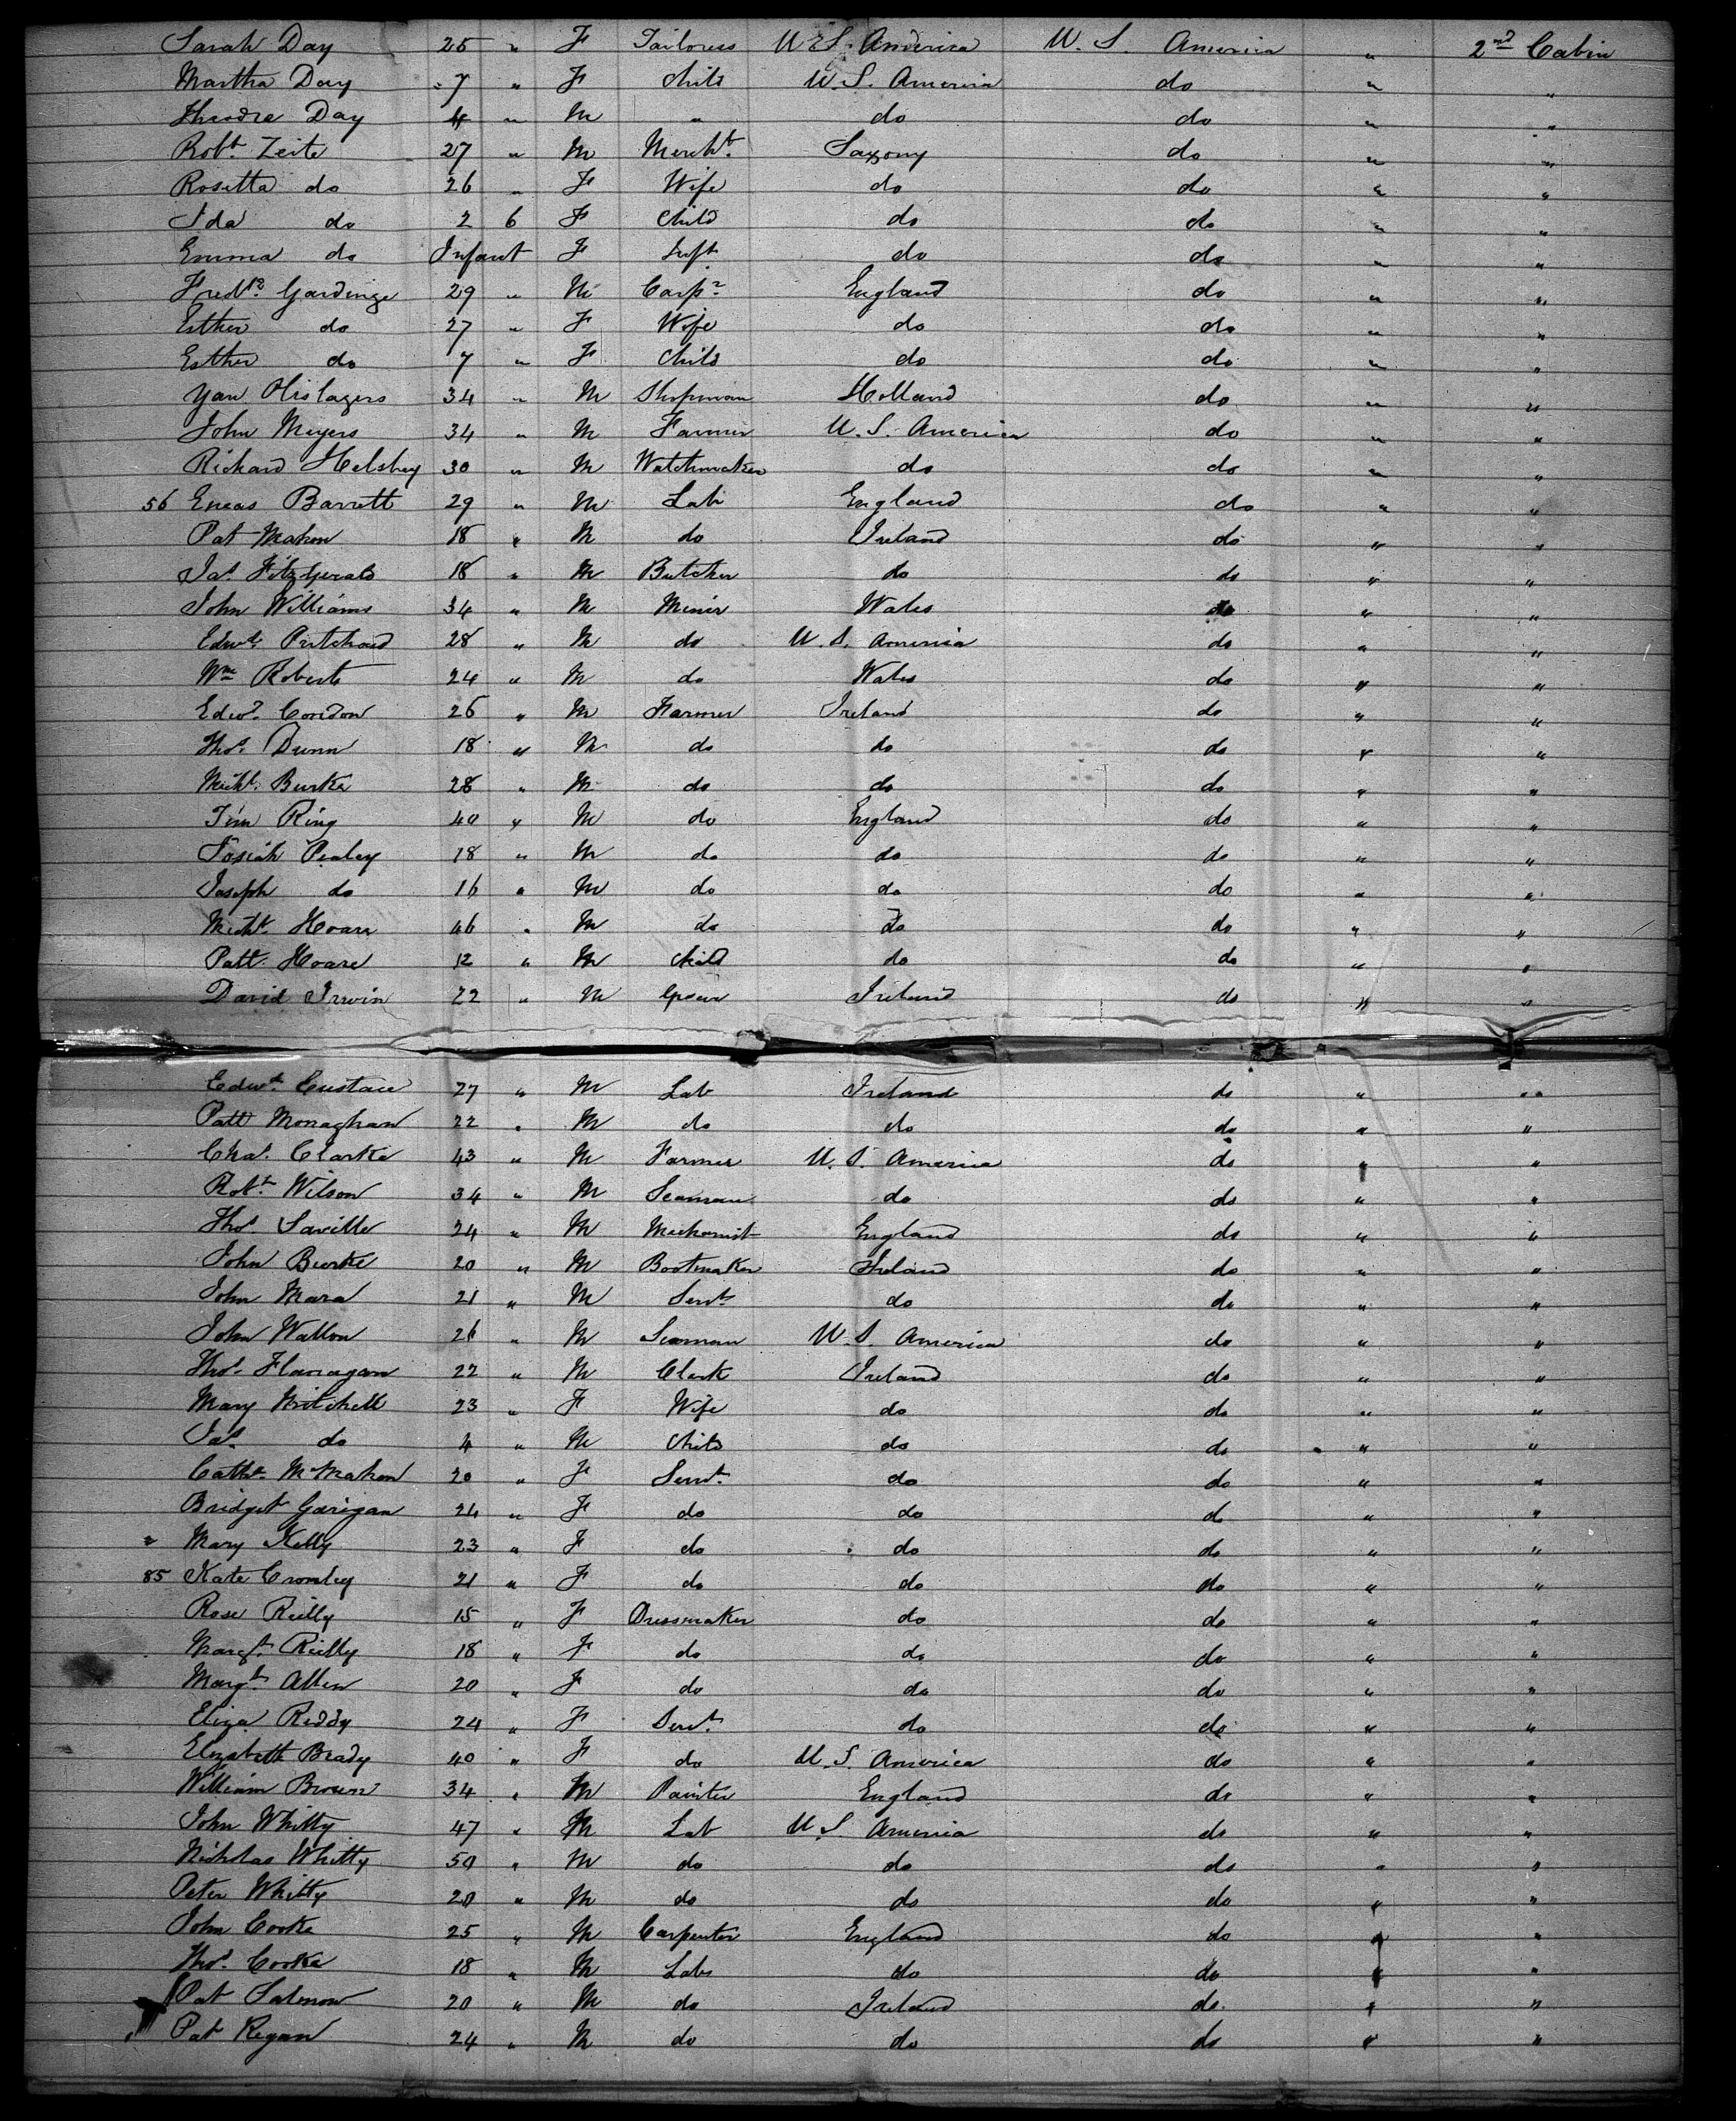 Sarah Day 25 " F Tailoress U.S. America U. S. America " 2nd Cabin
Martha Day 7 " F Child U.S. America do " "
Theodre Day 4 " M " do do " "
Robt. Zeite 27 " M Mercht. Saxony do " "
Rosetta do 26 " F Wife do do " "
Ida do 2 6 F Child do do " "
Emma do Infant F Inft do do " "
Fredk. Gardinge 29 " M Carpr. England do " "
Esther do 27 " F Wife do do " "
Esther do 7 " F Child do do " "
Yan 34 " M Shopman Holland do " "
John Meyers 34 " M Farmer U.S. America do " "
Richard Helsbey 30 " M Watchmaker do do " "
56 Eneas Barrett 29 " M Lab England do " "
Pat Mahon 18 " M do Ireland do " "
Jas. Fitzgerald 18 " M Butcher do do " "
John Williams 34 " M Miner Wales do " "
Edwd. Pritchard 28 " M do U.S. America do " "
Wm Roberts 24 " M do Wales do " "
Edwd. Condon 26 " M Farmer Ireland do " "
Thos. Dunn 18 " M do do do " "
Michl. Burke 28 " M do do do " "
Tim Ring 40 " M do England do " "
Josiah Pealey 18 " M do do do " "
Joseph do 16 " M do do do " "
Michl. Hoare 46 " M do do do " "
Patt. Hoare 12 " M Child do do " "
David Irwin 22 " M Ireland do " "
Edwd. Eustace 27 " M Lab Ireland do " "
Patt Monaghan 22 " M do do do " "
Chas. Clarke 43 " M Farmer U.S. America do " "
Robt. Wilson 34 " M Seaman do do " "
Thos Saville 24 " M Mechanist England do " "
John Burke 20 " M Bootmaker Ireland do " "
John Mara 21 " M Servt. do do " "
John Walton 26 " M Seaman U.S. America do " "
Thos. Flanagan 22 " M Clerk Ireland do " "
Mary Mitchell 23 " F Wife do do " "
Jas. do 4 " M Child do do " "
Cathe. McMahon 20 " F Servt. do do " "
Bridget Garigan 24 " F do do do " "
" Mary Kelly 23 " F do do do " "
85 Kate Cromley 21 " F do do do " "
Rose Reilly 15 " F Dressmaker do do " "
Margt. Reilly 18 " F do do do " "
Margt. Allen 20 " F do do do " "
Eliza Reddy 24 " F Servt. do do " "
Elizabeth Brady 40 " F do U.S. America do " "
William Brown 34 " M Painter England do " "
John Whitty 47 " M Lab U.S. America do " "
Nicholas Whitty 50 " M do do do " "
Peter Whitty 20 " M do do do " "
John Cooke 25 " M Carpenter England do " "
Thos. Cooke 18 " M Lab do do " "
Pat Salmon 20 " M do Ireland do. " "
Pat Regan 24 " M do do do " "